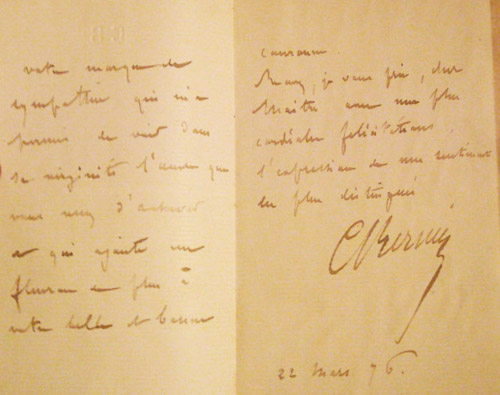 votre marque de
sympathie qui m'a
permis de voir dans
sa virginité l'œuvre que
vous d'achever
et qui ajoute un
fleuron de plus à
votre belle et bonne
couronne.
je vous prie, cher
Maître avec mes plus
cordiales félicitations,
l'expression de mes sentiments
les plus distingués
22 Mars 76.